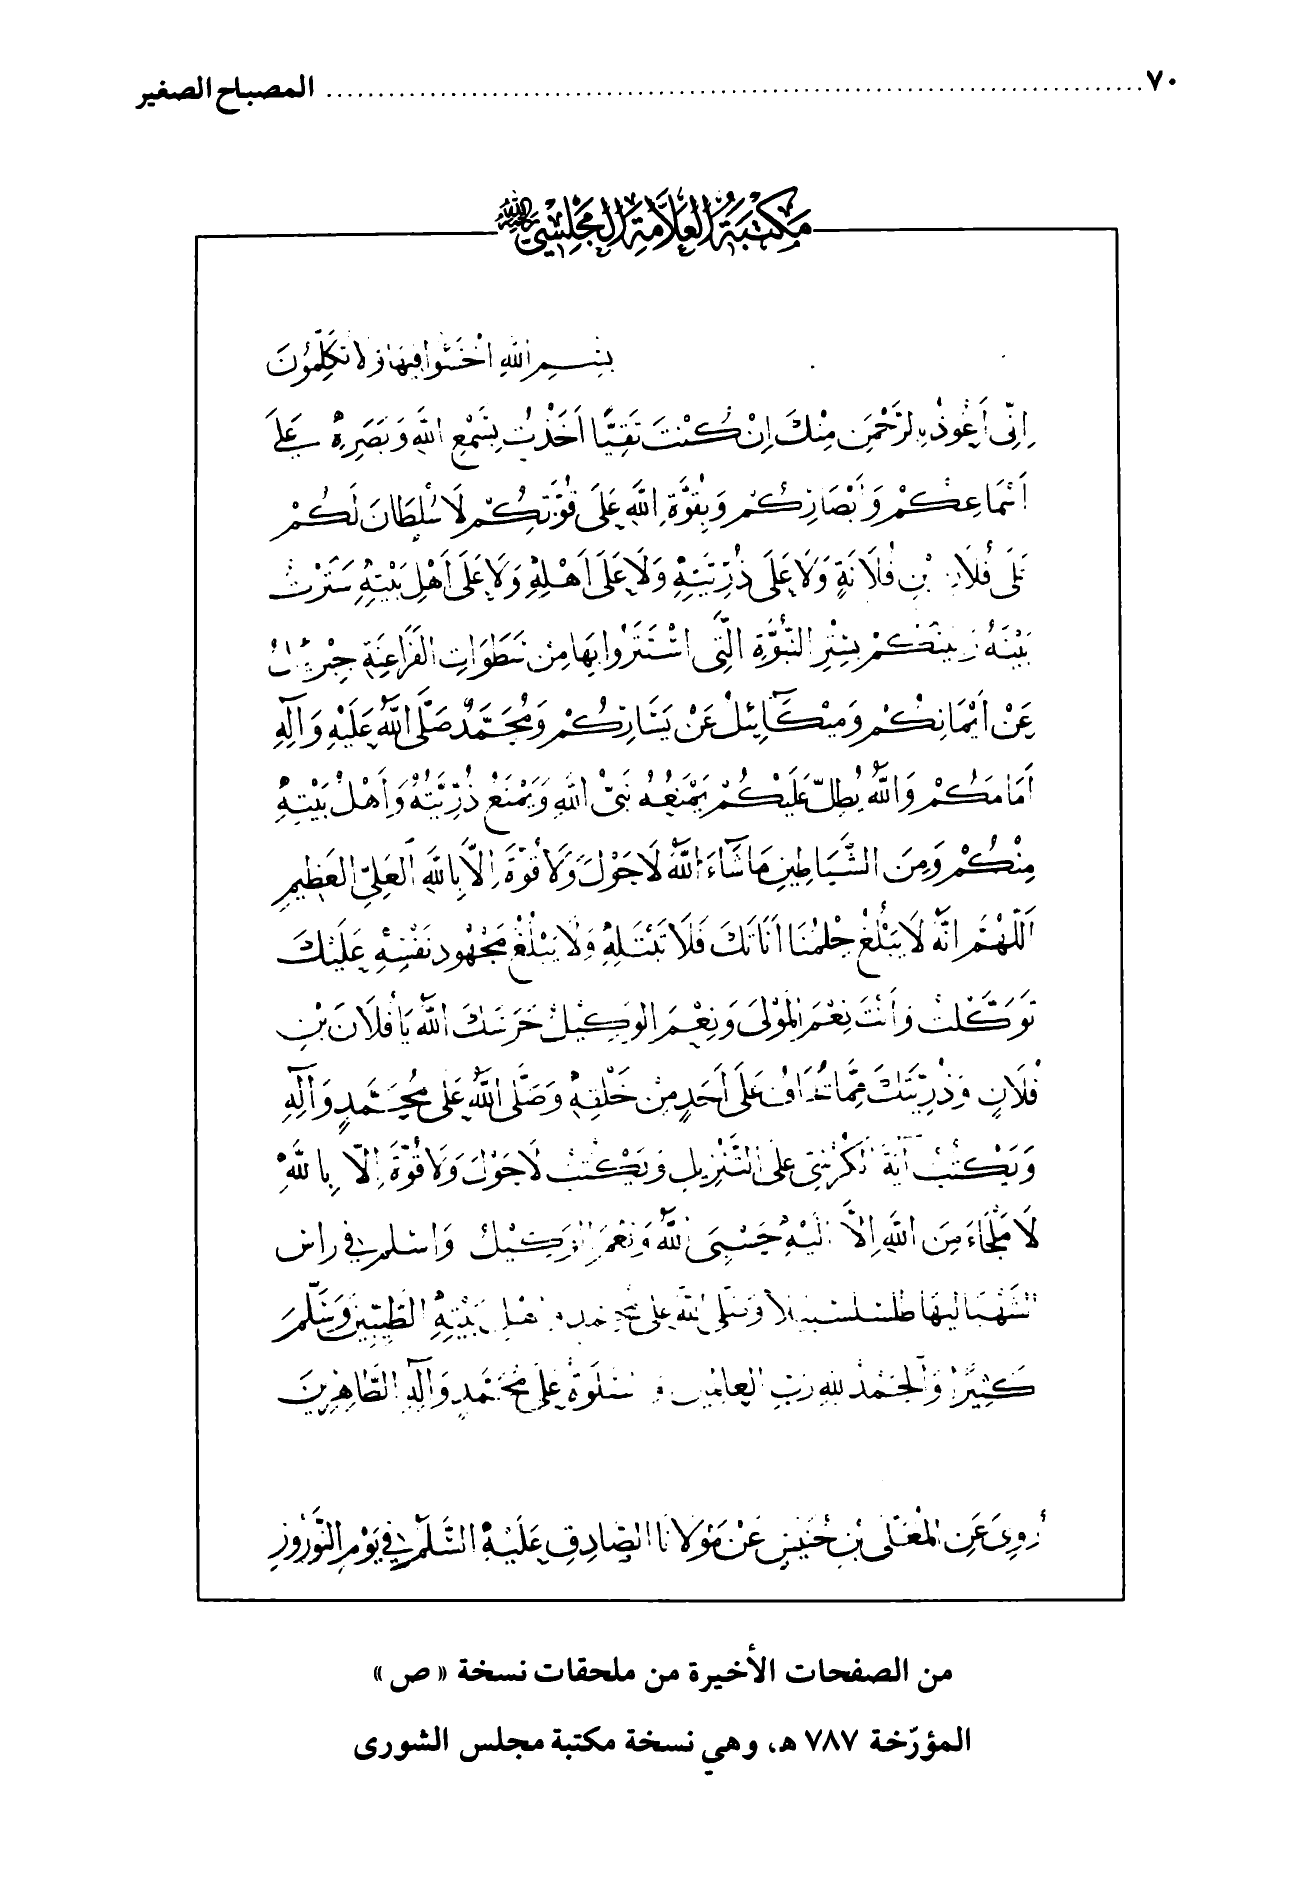 ٧٠ ........ المصباح الصغير
مَكْتَبَةُ العَلَّامَةِ المَجْلِسِيّ رحمه الله
بِسْمِ اللهِ اخْسَئُوا فِيهَا وَلَا تُكَلِّمُونَ
اِنّی اَعُوذُ بِالرَّحْمٰنِ مِنْكَ اِنْ كُنْتَ تَقِيًّا اَخَذْتُ بِسَمْعِ اللهِ وَبَصَرِهِ عَلَى
اَسْمَاعِكُمْ وَاَبْصَارِكُمْ وَبِقُوَّةِ اللهِ عَلَى قُوَّتِكُمْ لَا سُلْطَانَ لَكُمْ
عَلَى فُلَانِ بْنِ فُلَانَةٍ وَلَا عَلَى ذُرِّيَّتِهِ وَلَا عَلَى اَهْلِهِ وَلَا عَلَى اَهْلِ بَيْتِهِ سَتَرْتُ
بَيْنَهُ وَبَيْنَكُمْ بِسِتْرِ النُّبُوَّةِ الَّتِى اسْتَتَرُوا بِهَا مِنْ سَطَوَاتِ الفَرَاعِنَةِ جِبْرَئيلُ
عَنْ اَيْمَانِكُمْ وَمِيْكَآئِيلُ عَنْ يَسَارِكُمْ وَمُحَمَّدٌ صَلَّى اللهُ عَلَيْهِ وَآلِهِ
اَمَامَكُمْ وَاللهُ يُطِلُّ عَلَيْكُمْ يَمْنَعُهُ نَبِىُّ اللهِ وَيَمْنَعُ ذُرِّيَّتَهُ وَاَهْلَ بَيْتِهِ
مِنْكُمْ وَمِنَ الشَّيَاطِينِ مَا شَآءَ اللهُ لَا حَوْلَ وَلَا قُوَّةَ اِلَّا بِاللهِ العَلِىِّ العَظِيمِ
اَللّٰهُمَّ اِنَّهُ لَا يَبْلُغُ حِلْمُنَا اَنَاتَكَ فَلَا تَبْتَلِهِ وَلَا يَبْلُغُ مَجْهُودَ نَفْسِهِ عَلَيْكَ
تَوَكَّلْتُ وَاَنْتَ نِعْمَ المَوْلَى وَنِعْمَ الوَكِيْلُ حَرَسَكَ اللهُ يَا فُلَانَ بْنِ
فُلَانٍ وَذُرِّيَّتَكَ مِمَّا تَخَافُ عَلَى اَحَدٍ مِنْ خَلْقِهِ وَصَلَّى اللهُ عَلَى مُحَمَّدٍ وَآلِهِ
وَيَكْتُبُ آيَةَ الكُرْسِىِّ عَلَى التَّنْزِيلِ وَيَكْتُبُ لَا حَوْلَ وَلَا قُوَّةَ اِلَّا بِاللهِ
لَا مَلْجَاءَ مِنَ اللهِ اِلَّا اِلَيْهِ حَسْبِىَ اللهُ وَنِعْمَ الوَكِيْلُ وَاسْلم فى راس
الشهبا ليها طلسلسبيلا وَصَلَّى اللهُ عَلَى مُحَمَّدٍ وَاَهْلِ بَيْتِهِ الطَّيِّبِيْنَ وَسَلَّمَ
كَثِيرًا وَالحَمْدُ لِلّٰهِ رَبِّ العالمين وَ صَلوةٌ عَلَى مُحَمَّدٍ وَآلِهِ الطَّاهِرِينَ
رُوِىَ عَنِ المُعَلَّى بْنِ خُنَيْسٍ عَنْ مَوْلَانَا الصَّادِقِ عَلَيْهِ السَّلَامُ فى يَوْمِ النَّوْرُوزِ
من الصفحات الأخيرة من ملحقات نسخة « ص »
المؤرّخة ٧٨٧ هـ، وهي نسخة مكتبة مجلس الشورى